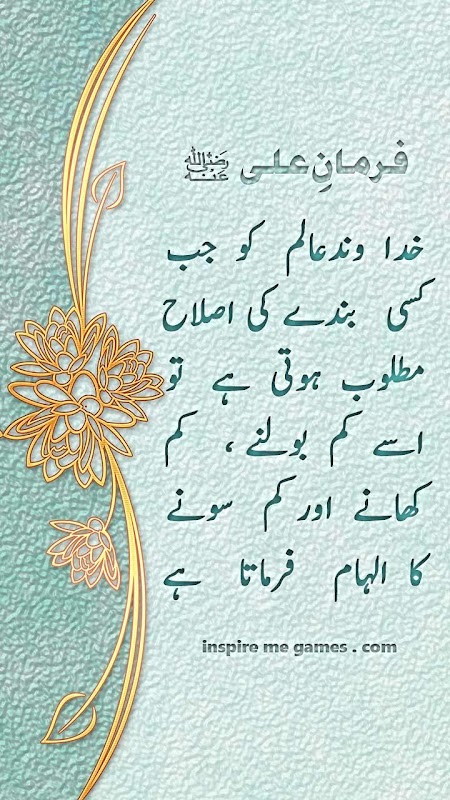 فرمانِ علی رضی اللہ عنہ
خدا وندعالم کو جب
کسی بندے کی اصلاح
مطلوب ہوتی ہے تو
اسے کم بولنے، کم
کھانے اور کم سونے
کا الہام فرماتا ہے
inspire me games . com